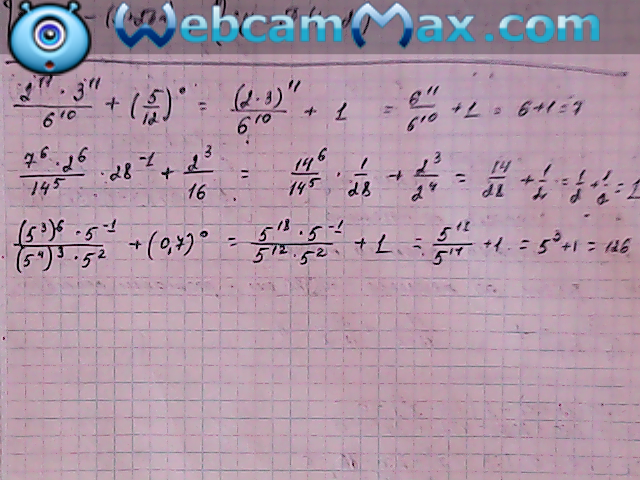 WebcamMax.com
2^11 · 3^11 / 6^10 + (5/12)^0 = (2·3)^11 / 6^10 + 1 = 6^11 / 6^10 + 1 = 6+1=7
7^6 · 2^6 / 14^5 · 28^-1 + 2^3 / 16 = 14^6 / 14^5 · 1/28 + 2^3 / 2^4 = 14/28 + 1/2 = 1/2 + 1/2 = 1
(5^3)^6 · 5^-1 / (5^4)^3 · 5^2 + (0,7)^0 = 5^18 · 5^-1 / 5^12 · 5^2 + 1 = 5^17 / 5^14 + 1 = 5^3+1 = 126